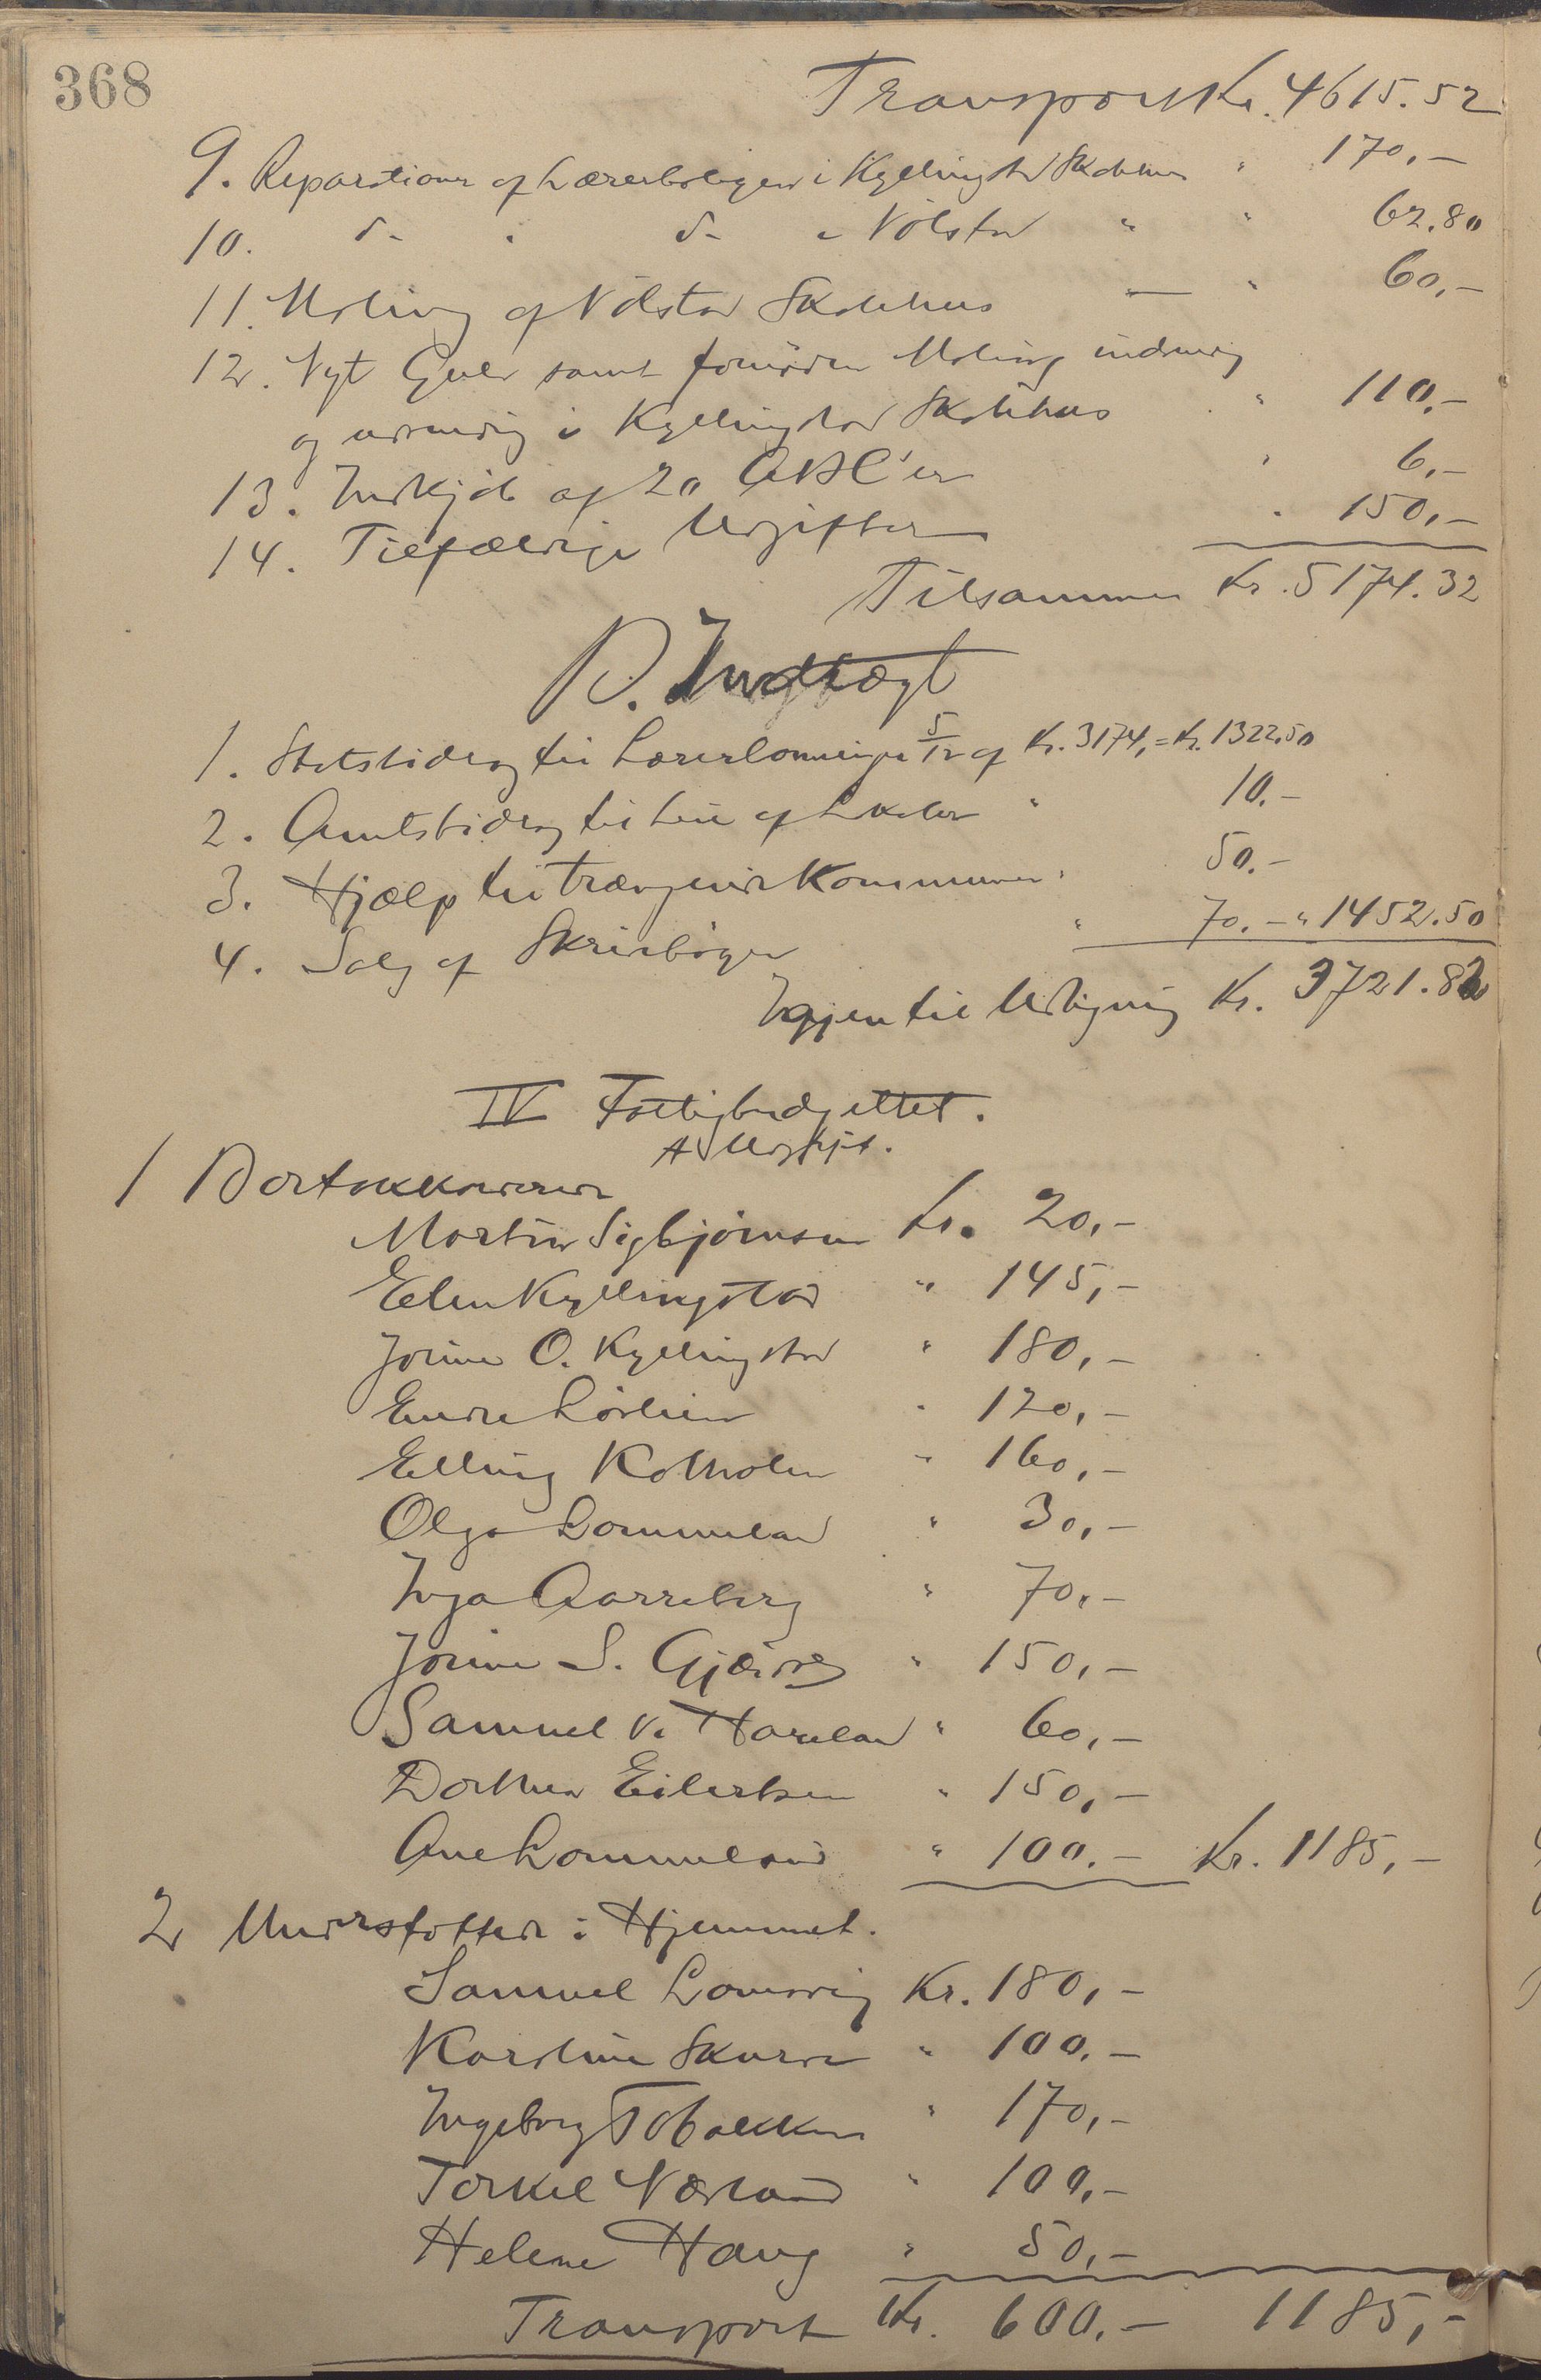 368
Transport Kr. 4615.52
9. Reparationer af Lærerboligen i Kyllingstad Skolehus " 170,-
10. do " do " Nølstad " " 62.80
11. Maling af Nølstad Skolehus — " 60,-
12. Nyt Gulv samt fornøden Maling indvendig
og udvendig i Kyllingstad Skolehus " 110,-
13. Indkjøb af 20 ABC'er " 6,-
14. Tilfældige Udgifter " 150,-
Tilsammen Kr. 5174.32
B. Indtægt
1. Statsbidrag til Lærerlønninger 5/12 af Kr. 3174,= Kr. 1322.50
2. Amtsbidrag til Leie af Lokaler " 10.-
3. Hjælp til trængende Kommuner " 50.-
4. Salg af Skrivebøger " 70.- " 1452.50
Igjen til Udligning Kr. 3721.82
IV Fattigbudgettet.
A Udgift.
1 Bortakkorderede
Martin Sigbjørnsen Kr. 20,-
Elen Kyllingstad " 145,-
Jorine O. Kyllingstad " 180,-
Endre Lørlien " 120,-
Elling Kolholen " 160,-
Olga Lommeland " 30,-
Inga Aarreberg " 70,-
Jorine S. " 150,-
Samuel V. Haveland " 60,-
Dorthea Eilertsen " 150,-
Ane Lommeland " 100.- Kr. 1185,-
2 Understøttede i Hjemmet.
Samuel Lomsvig Kr. 180,-
Karoline Skurve " 100.-
Ingeborg Tobakken " 170,-
Torkel Nærland " 100,-
Helene Haug " 50,-
Transport Kr. 600.- 1185,-